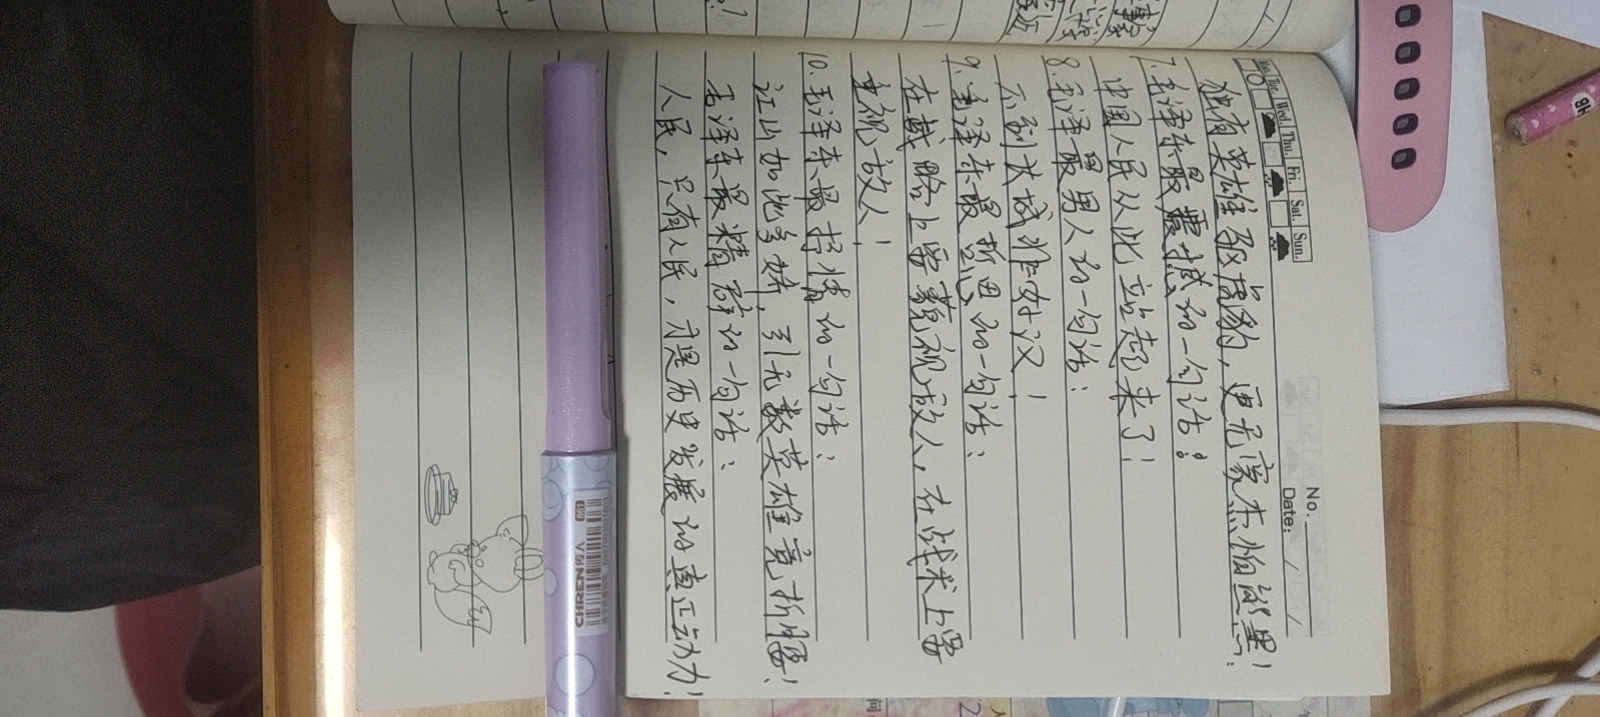 No.
Date: / /
Mo. Tue. Wed. Thu. Fri. Sat. Sun.
独有英雄驱虎豹，更无豪杰怕熊罴！
7.毛泽东最震撼的一句话：
中国人民从此立站起来了！
8.毛泽最男人的一句话：
不到长城非好汉！
9.毛泽东最哲思的一句话：
在战略上要藐视敌人，在战术上要
重视敌人！
10.毛泽东最抒情的一句话：
江山如此多娇，引无数英雄竞折腰！
毛泽东最精辟的一句话：
人民，只有人民，才是历史发展的真正动力！
CHRCN传人
861
HB